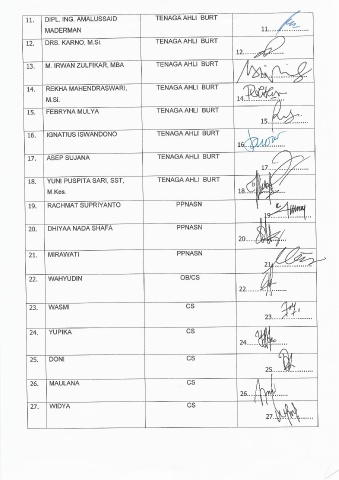 11. DIPL. ING. AMALUSSAID TENAGA AHLI BURT
MADERMAN 11.
12. DRS. KARNO, M.Si. TENAGA AHLI BURT 12.
13. M. IRWAN ZULFIKAR, MBA TENAGA AHLI BURT
14. REKHA MAHENDRASWARI, TENAGA AHLI BURT 14.
M.Si.
15. FEBRYNA MULYA TENAGA AHLI BURT 15.
16. IGNATIUS ISWANDONO TENAGA AHLI BURT 16.
17. ASEP SUJANA TENAGA AHLI BURT 17.
18. YUNI PUSPITA SARI, SST, TENAGA AHLI BURT 18.
M.Kes.
19. RACHMAT SUPRIYANTO PPNASN 19.
20. DHIYAA NADA SHAFA PPNASN 20.
21. MIRAWATI PPNASN 21.
22. WAHYUDIN OB/CS 22.
23. WASMI CS 23.
24. YUPIKA CS 24.
25. DONI CS 25.
26. MAULANA CS 26.
27. WIDYA CS 27.